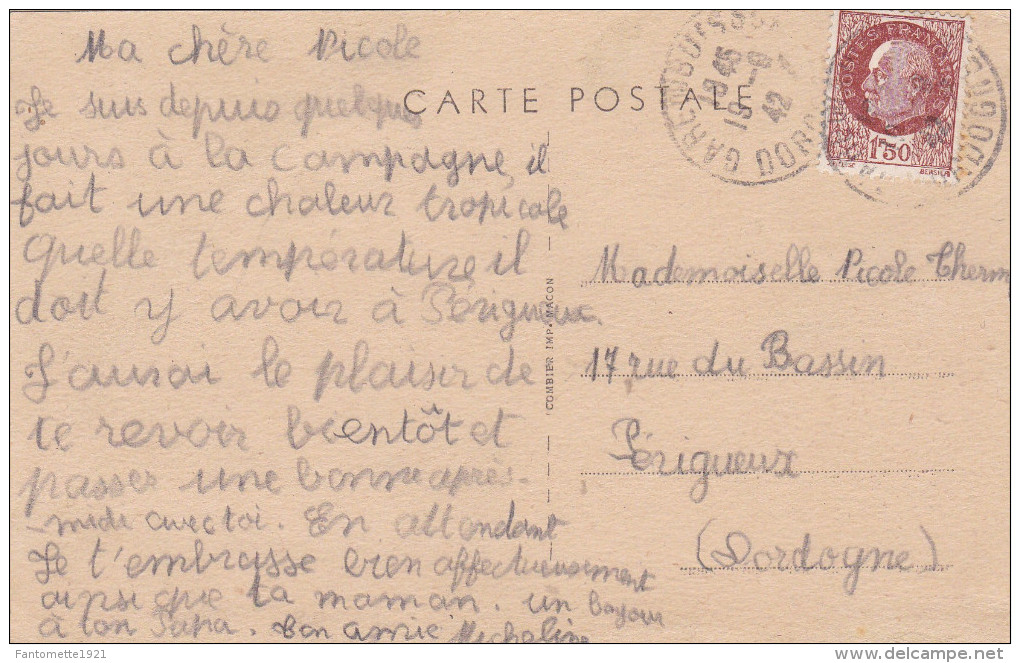 Ma chère Nicole
Je suis depuis quelques
jours à la campagne, il
fait une chaleur tropicale
Quelle température il
doit y avoir à Périgueux.
J'aurai le plaisir de
te revoir bientôt et
passer une bonne après-
-midi avec toi. En attendant
Je t'embrasse bien affectueusement
ainsi que ta maman. un bonjour
à ton Papa. ton amie Micheline
CARTE POSTALE
COMBIER IMP. MACON
POSTES FRANÇAISES
1F50
BERSIER
1945
19-9
42
Mademoiselle Nicole Therm
17 rue du Bassin
Périgueux
(Dordogne)
Fantomette1921
delcampe.net